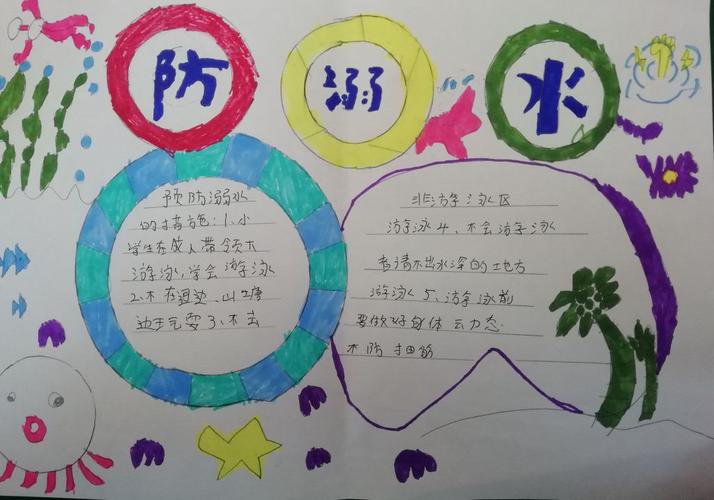 防溺水
预防溺水
的措施:1、小
学生在成人带领
游泳,学会游泳
2、不在 、山塘
边玩耍 3、不去
非游泳区
游泳 4、不会游泳
者请不出水深的地方
游泳 5、游泳前
要做好身体
防抽筋